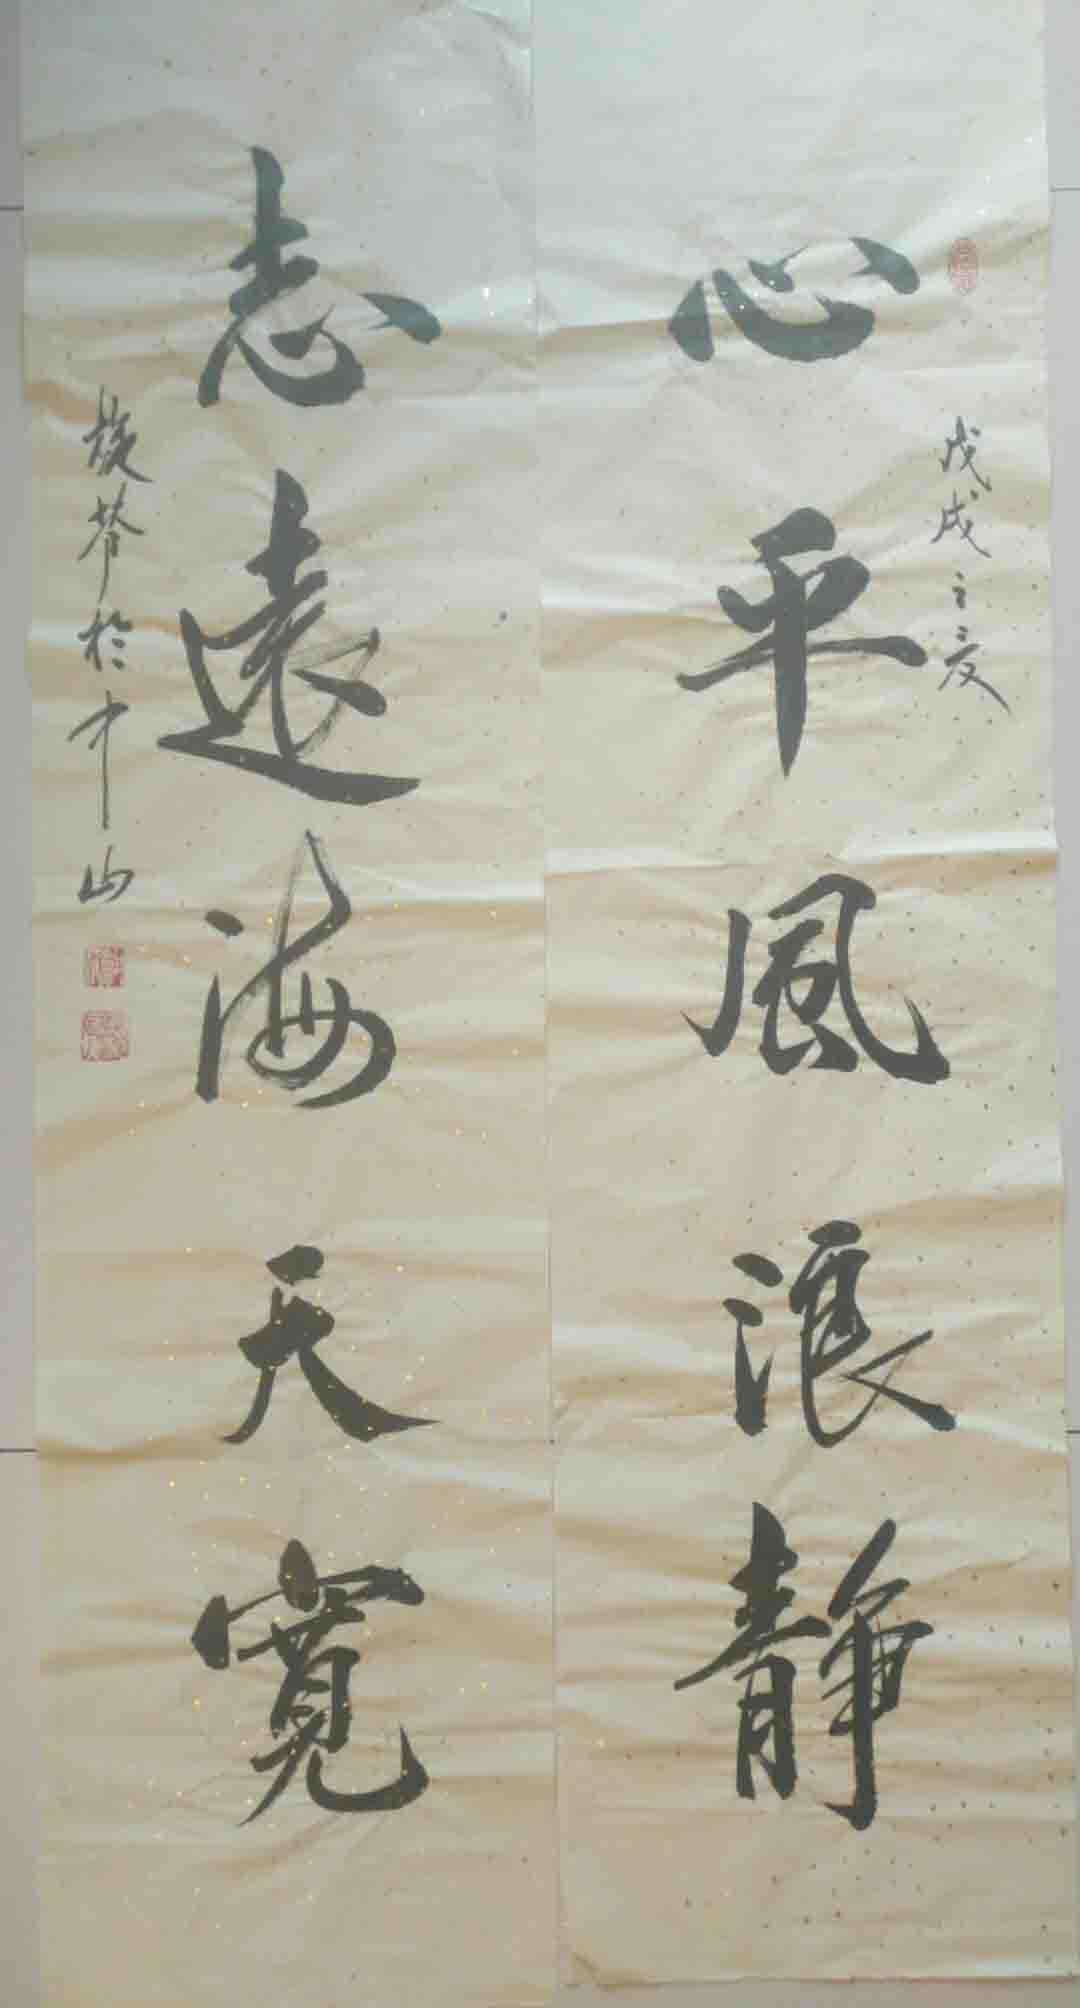 心平風浪靜
戊戌之夏
志遠海天寬
於中山